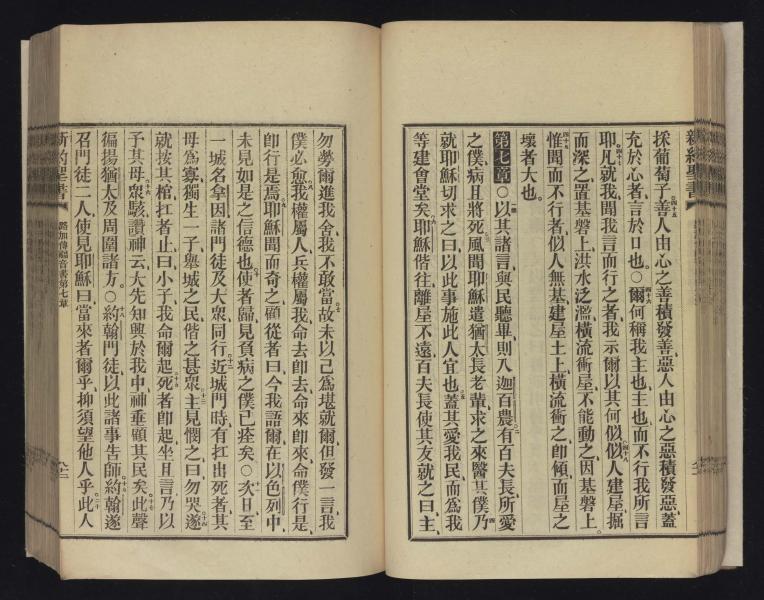 採葡萄子善人由心之善積發善惡人由心之惡積發惡蓋
充於心者言於口也○爾何稱我主也主也而不行我所言
耶凡就我聞我言而行之者我示爾以其何似似人建屋掘
而深之置基磐上洪水泛濫橫流衝屋不能動之因基磐上
惟聞而不行者似人無基建屋土上橫流衝之卽傾而屋之
壞者大也
第七章○以其諸言與民聽畢則入迦百農有百夫長所愛
之僕病且將死風聞耶穌遣猶太長老輩求之來醫其僕乃
就耶穌切求之曰以此事施此人宜也蓋其愛我民而爲我
等建會堂矣耶穌偕往離屋不遠百夫長使其友就之曰主
勿勞爾進我舍我不敢當故未以己爲堪就爾但發一言我
僕必愈我權屬人兵權屬我命去卽去命來卽來命僕行是
卽行是焉耶穌聞而奇之顧從者曰今我語爾在以色列中
未見如是之信德也使者歸見負病之僕已痊矣○次日至
一城名拿因諸門徒及大衆同行近城門時有扛出死者其
母爲寡獨生一子舉城之民偕之甚衆主見憫之曰勿哭遂
就按其棺扛者止曰小子我命爾起死者卽起坐且言乃以
予其母衆駭讚神云大先知興於我中神垂顧其民矣此聲
徧揚猶太及周圍諸方○約翰門徒以此諸事告師約翰遂
召門徒二人使見耶穌曰當來者爾乎抑須望他人乎此人
新約聖書 路加傳福音書第七章